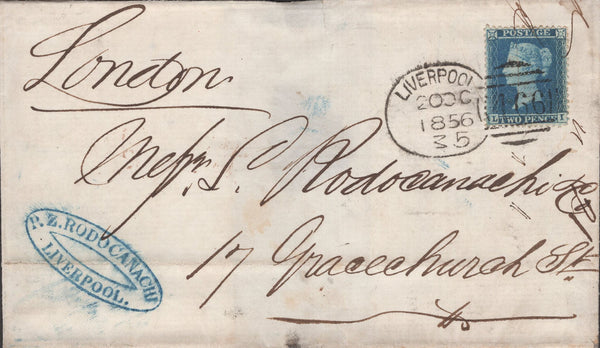 London
Messrs. S. Rodocanachi & Co
17 Gracechurch St.
LIVERPOOL
20 OC
1856
35
466
POSTAGE
L TWO PENCE I
P. Z. RODOCANACHI
LIVERPOOL.